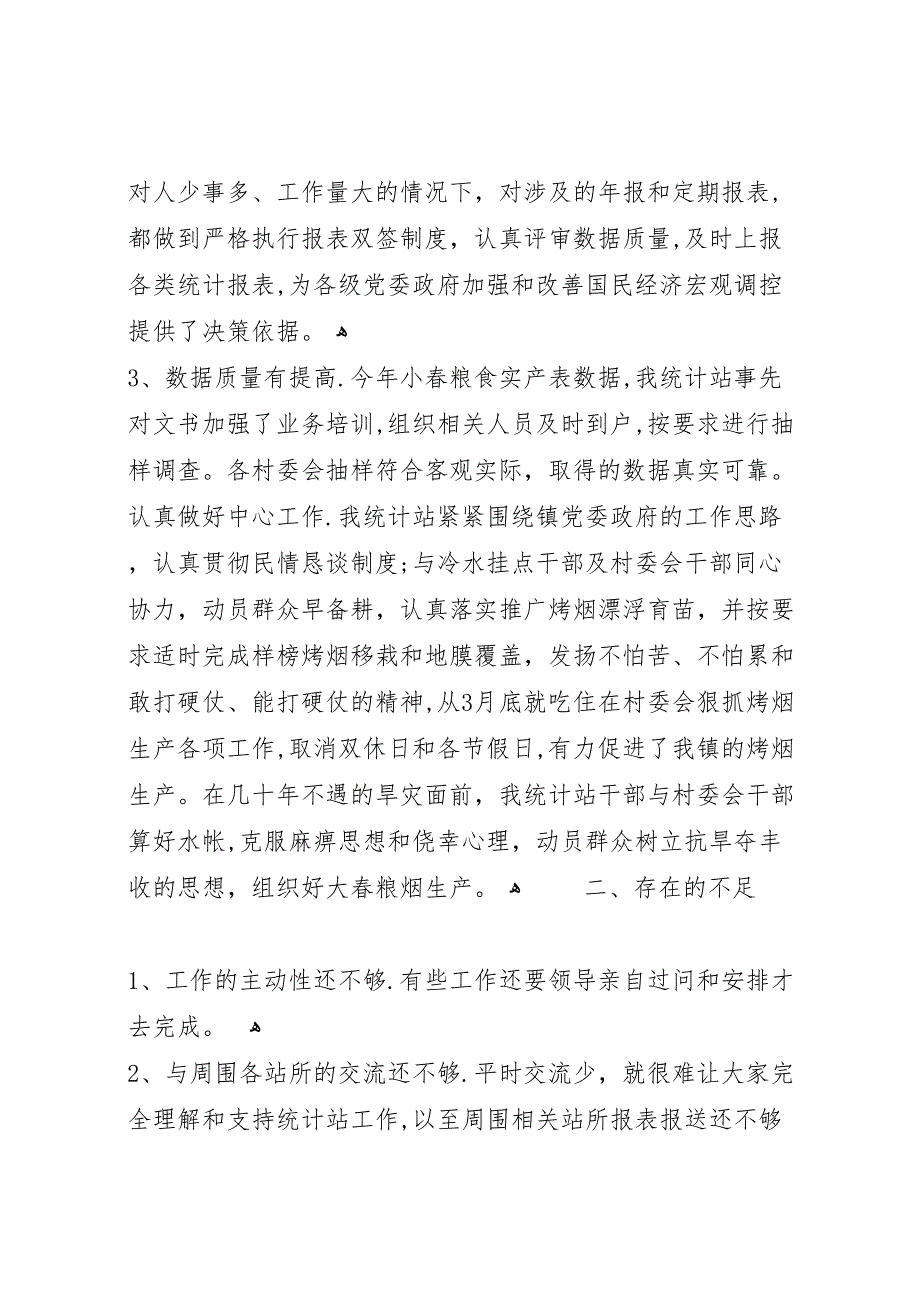 对人少事多、工作量大的情况下，对涉及的年报和定期报表,
都做到严格执行报表双签制度，认真评审数据质量,及时上报
各类统计报表,为各级党委政府加强和改善国民经济宏观调控
提供了决策依据。 ﻫ
3、数据质量有提高.今年小春粮食实产表数据,我统计站事先
对文书加强了业务培训,组织相关人员及时到户,按要求进行抽
样调查。各村委会抽样符合客观实际，取得的数据真实可靠。
认真做好中心工作.我统计站紧紧围绕镇党委政府的工作思路
，认真贯彻民情恳谈制度;与冷水挂点干部及村委会干部同心
协力，动员群众早备耕，认真落实推广烤烟漂浮育苗，并按要
求适时完成样榜烤烟移栽和地膜覆盖，发扬不怕苦、不怕累和
敢打硬仗、能打硬仗的精神,从3月底就吃住在村委会狠抓烤烟
生产各项工作,取消双休日和各节假日,有力促进了我镇的烤烟
生产。在几十年不遇的旱灾面前，我统计站干部与村委会干部
算好水帐,克服麻痹思想和侥幸心理，动员群众树立抗旱夺丰
收的思想，组织好大春粮烟生产。 ﻫ 二、存在的不足
1、工作的主动性还不够.有些工作还要领导亲自过问和安排才
去完成。 ﻫ
2、与周围各站所的交流还不够.平时交流少，就很难让大家完
全理解和支持统计站工作,以至周围相关站所报表报送还不够